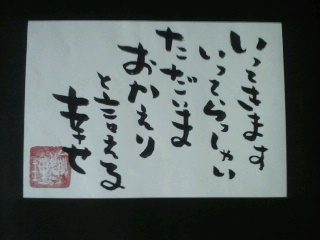 いってきます
いってらっしゃい
ただいま
おかえり
と言える
幸せ